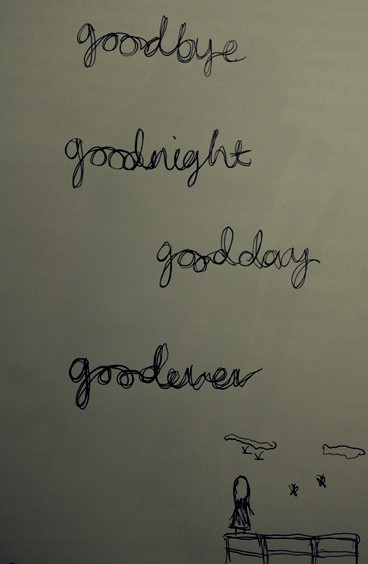 goodbye
goodnight
goodday
goodever